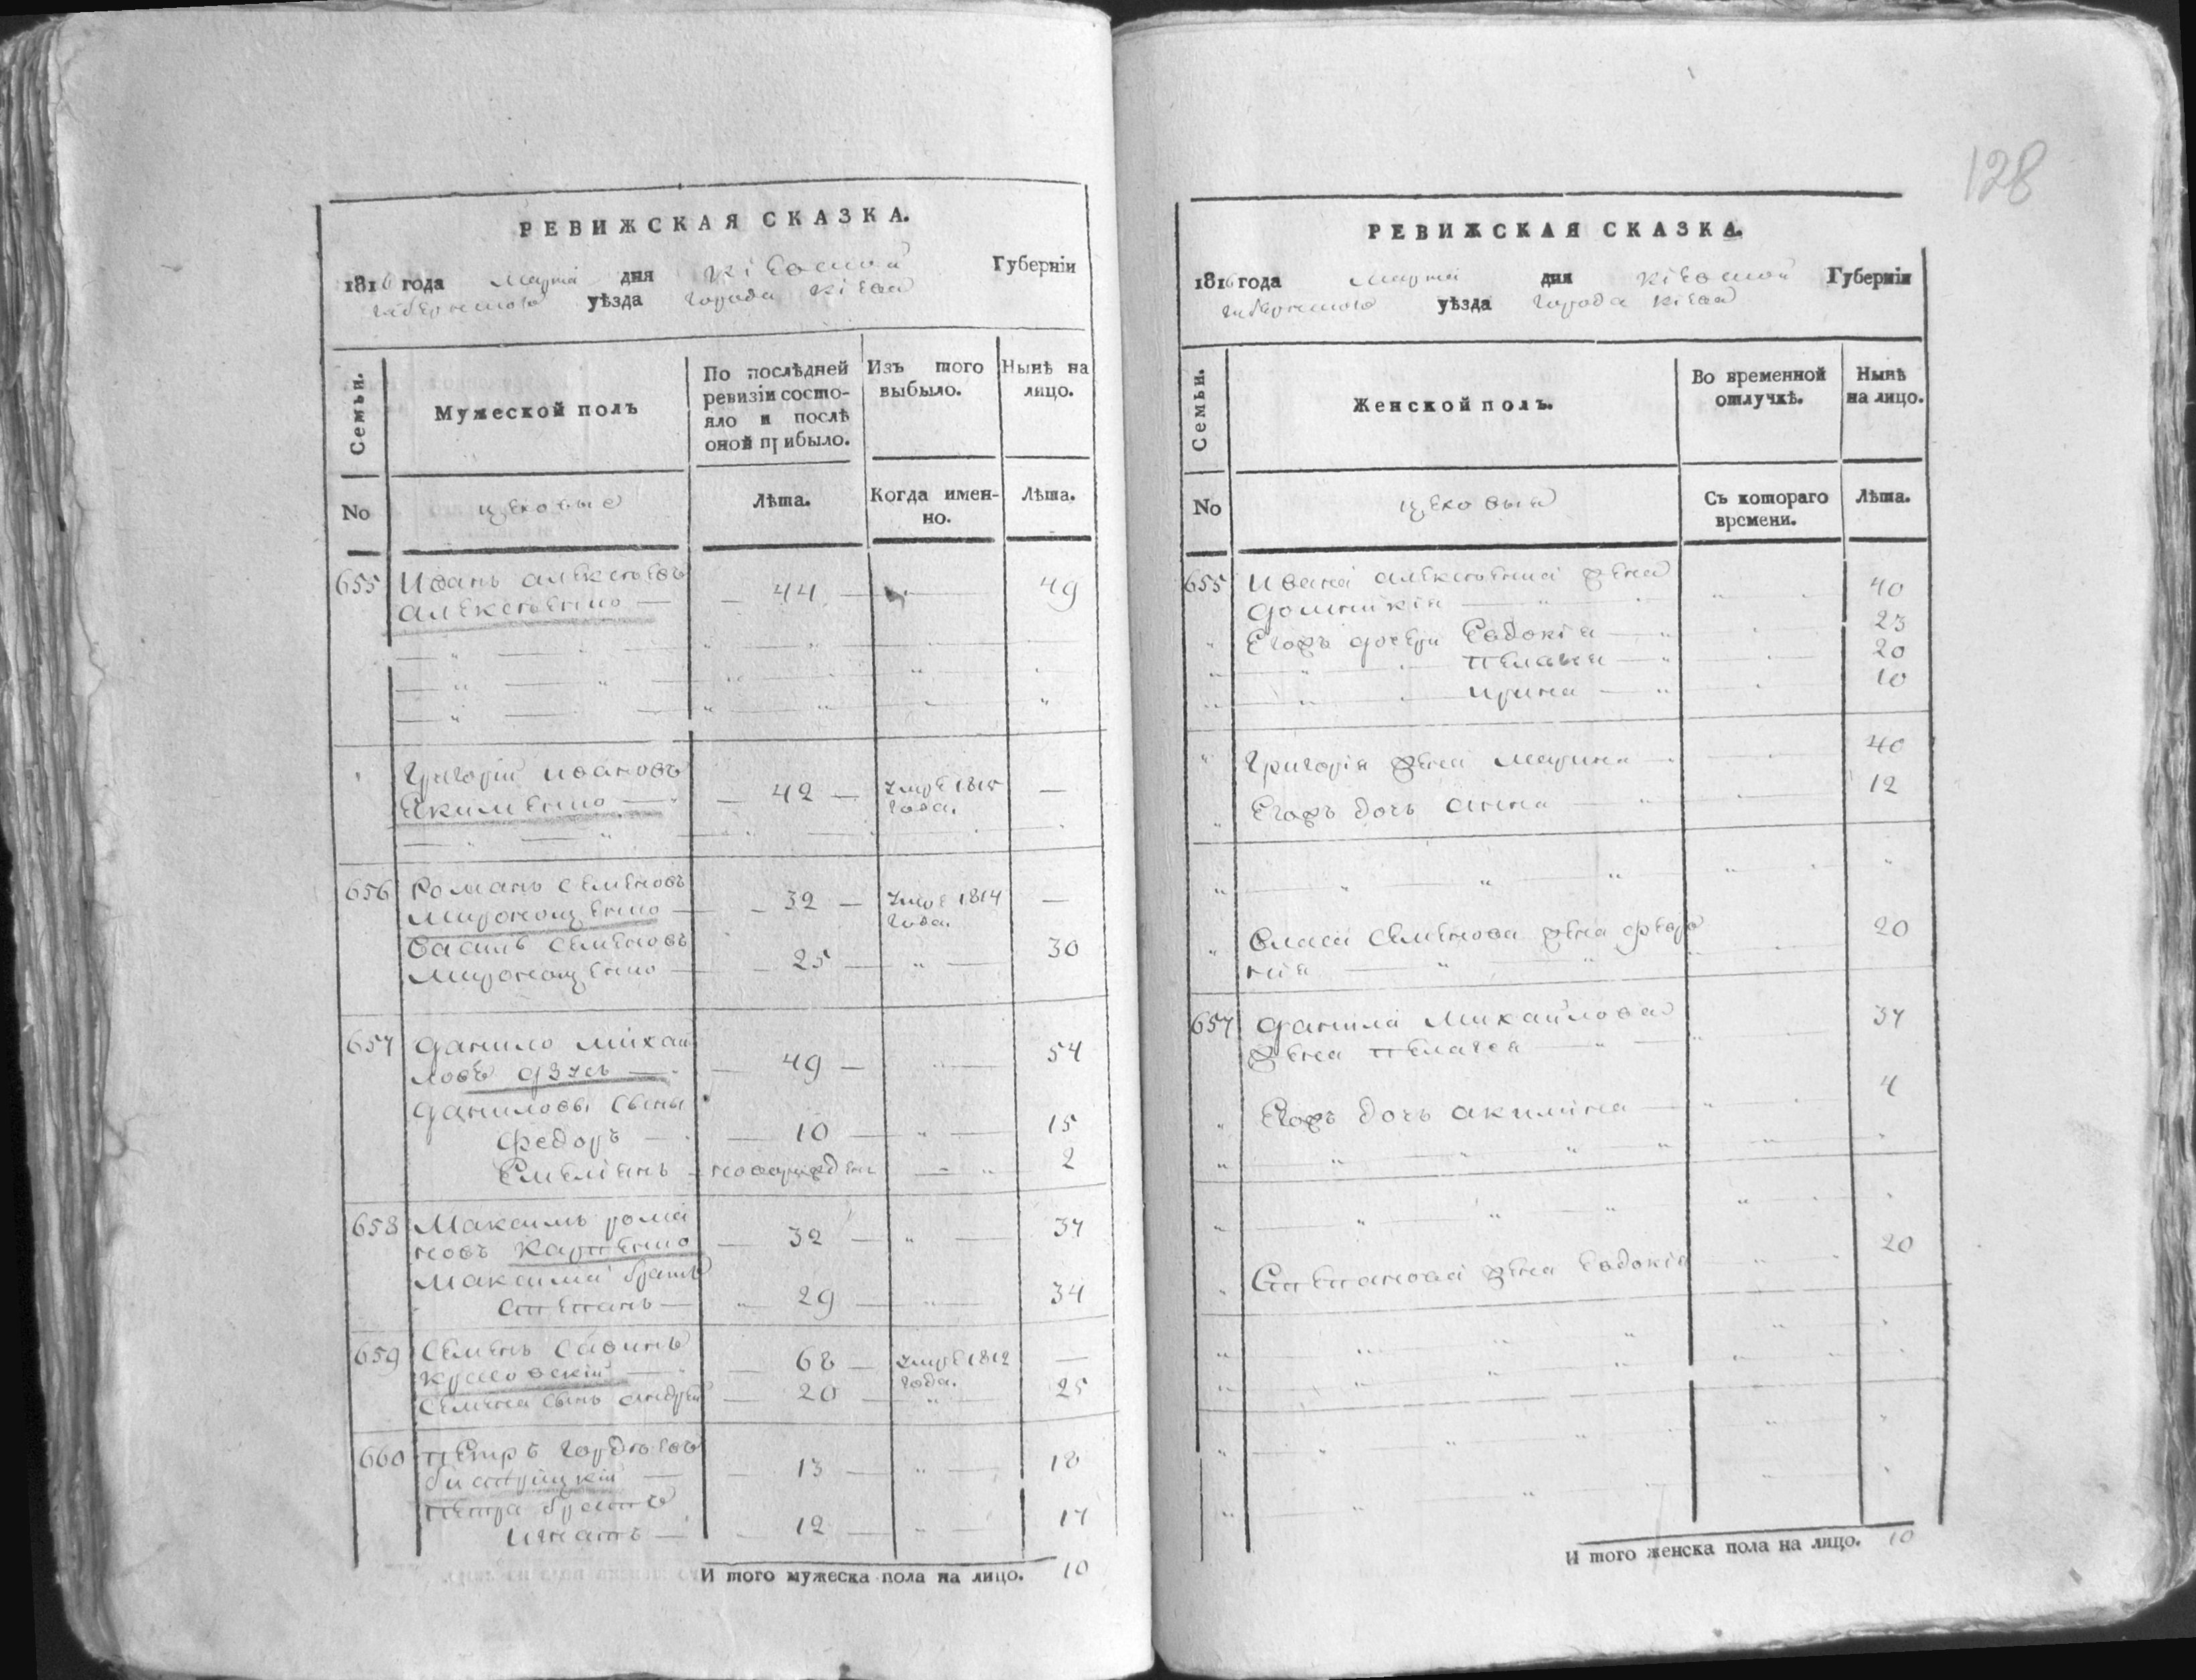 128
РЕВИЖСКАЯ СКАЗКА.
1816 года марта дня Кіевской Губерніи
губернского уѣзда города Кіева
Семьи.
Мужеской полъ
По послѣдней ревизіи состо-
яло и послѣ
оной прибыло.
Изъ того
выбыло.
Нынѣ на
лицо.
No
цеховые
Лѣта.
Когда имен-
но.
Лѣта.
655 Иванъ Алексѣевъ
Алексѣенко — 44 — 49
Григорій Ивановъ
Якименко — 42 — умре 1815 года. —
656 Романъ Семеновъ
— 32 — умре 1814 года. —
Семеновъ
— 25 — „ — 30
657 Данило Михай
ловъ — 49 — 54
Даниловы сыны
Федоръ — 10 — „ — 15
Емеліянъ — новорожден — „ 2
658 Максимъ Рома
новъ Карпенко — 32 — „ — 37
Максима братъ
Степанъ — 29 — 34
659 Семенъ Савинъ
— 68 — умре 1812 года. —
Семена сынъ Андрей — 20 — „ — 25
660 Петръ Гордѣевъ
— 13 — „ — 18
Петра братъ
Игнатъ — 12 — „ — 17
И того мужеска пола на лицо. 10
РЕВИЖСКАЯ СКАЗКА.
1816 года марта дня Кіевской Губерніи
губернского уѣзда города Кіева
Семьи.
Женской полъ.
Во временной
отлучкѣ.
Нынѣ
на лицо.
No
цеховыя
Съ котораго
времени.
Лѣта.
655 Ивана Алексѣенка жена
Домникія — 40
Егожъ дочери Евдокія — 23
Пелагея — 20
Ирина — 10
Григорія жена Марина 40
Егожъ дочь Анна — 12
Власа Семенова жена Февро
нія — 20
657 Данила Михайлова
жена Пелагея — 37
Егожъ дочь Акилина — 4
Степанова жена Евдокія 20
И того женска пола на лицо. 10